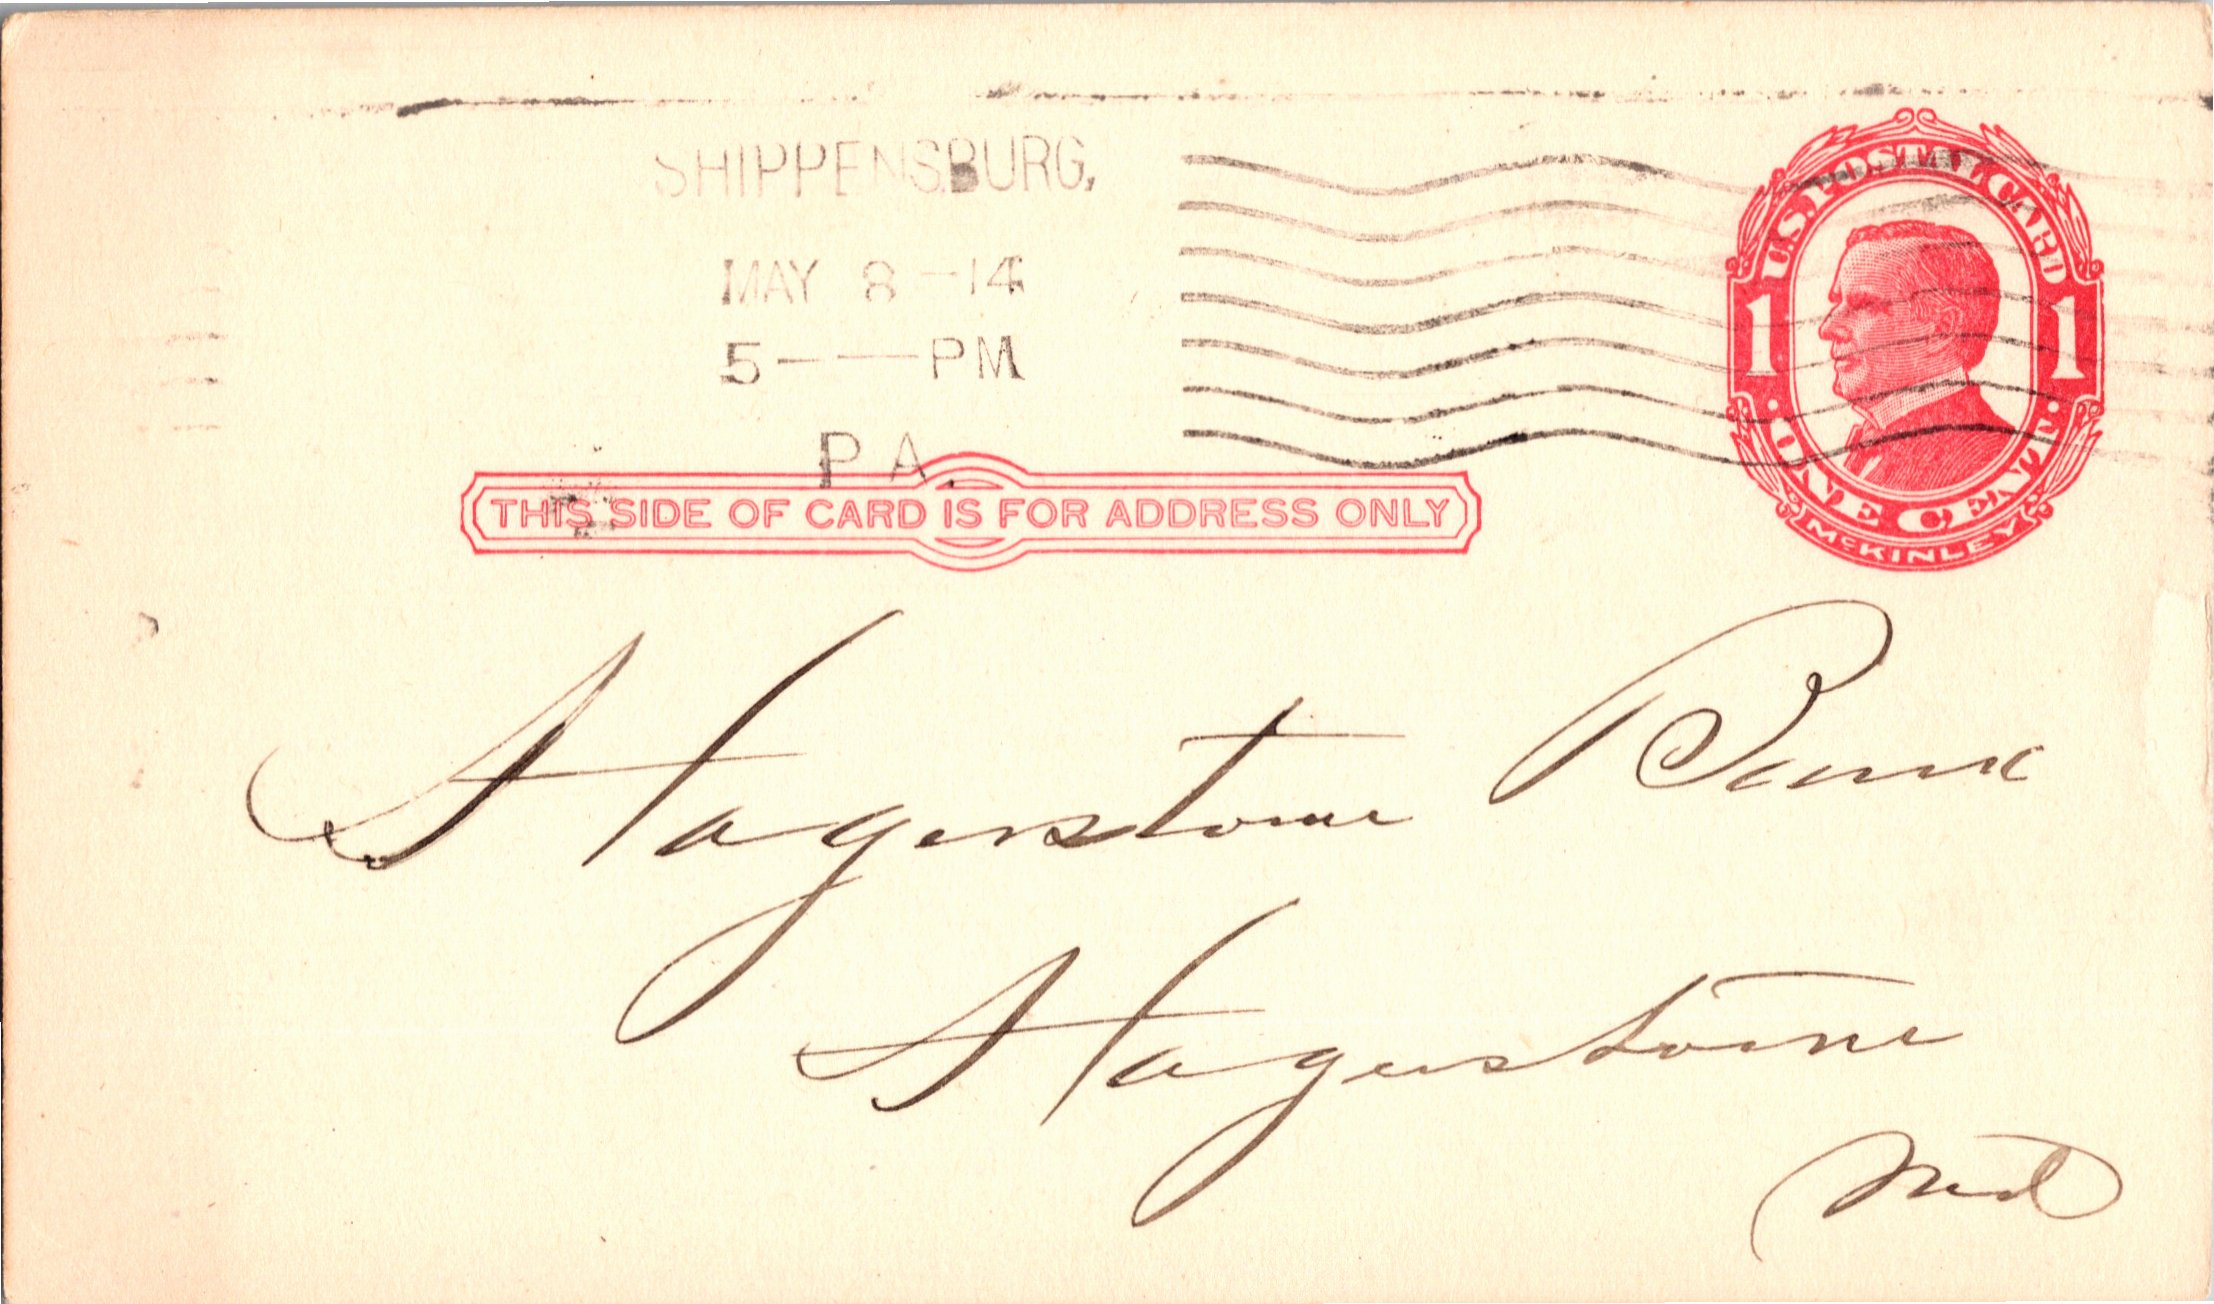 SHIPPENSBURG,
MAY 8 - 14
5 - PM
PA.
U.S. POSTAL CARD
1 1
ONE CENT
McKINLEY
THIS SIDE OF CARD IS FOR ADDRESS ONLY
Hagerstown Bank
Hagerstown
Md